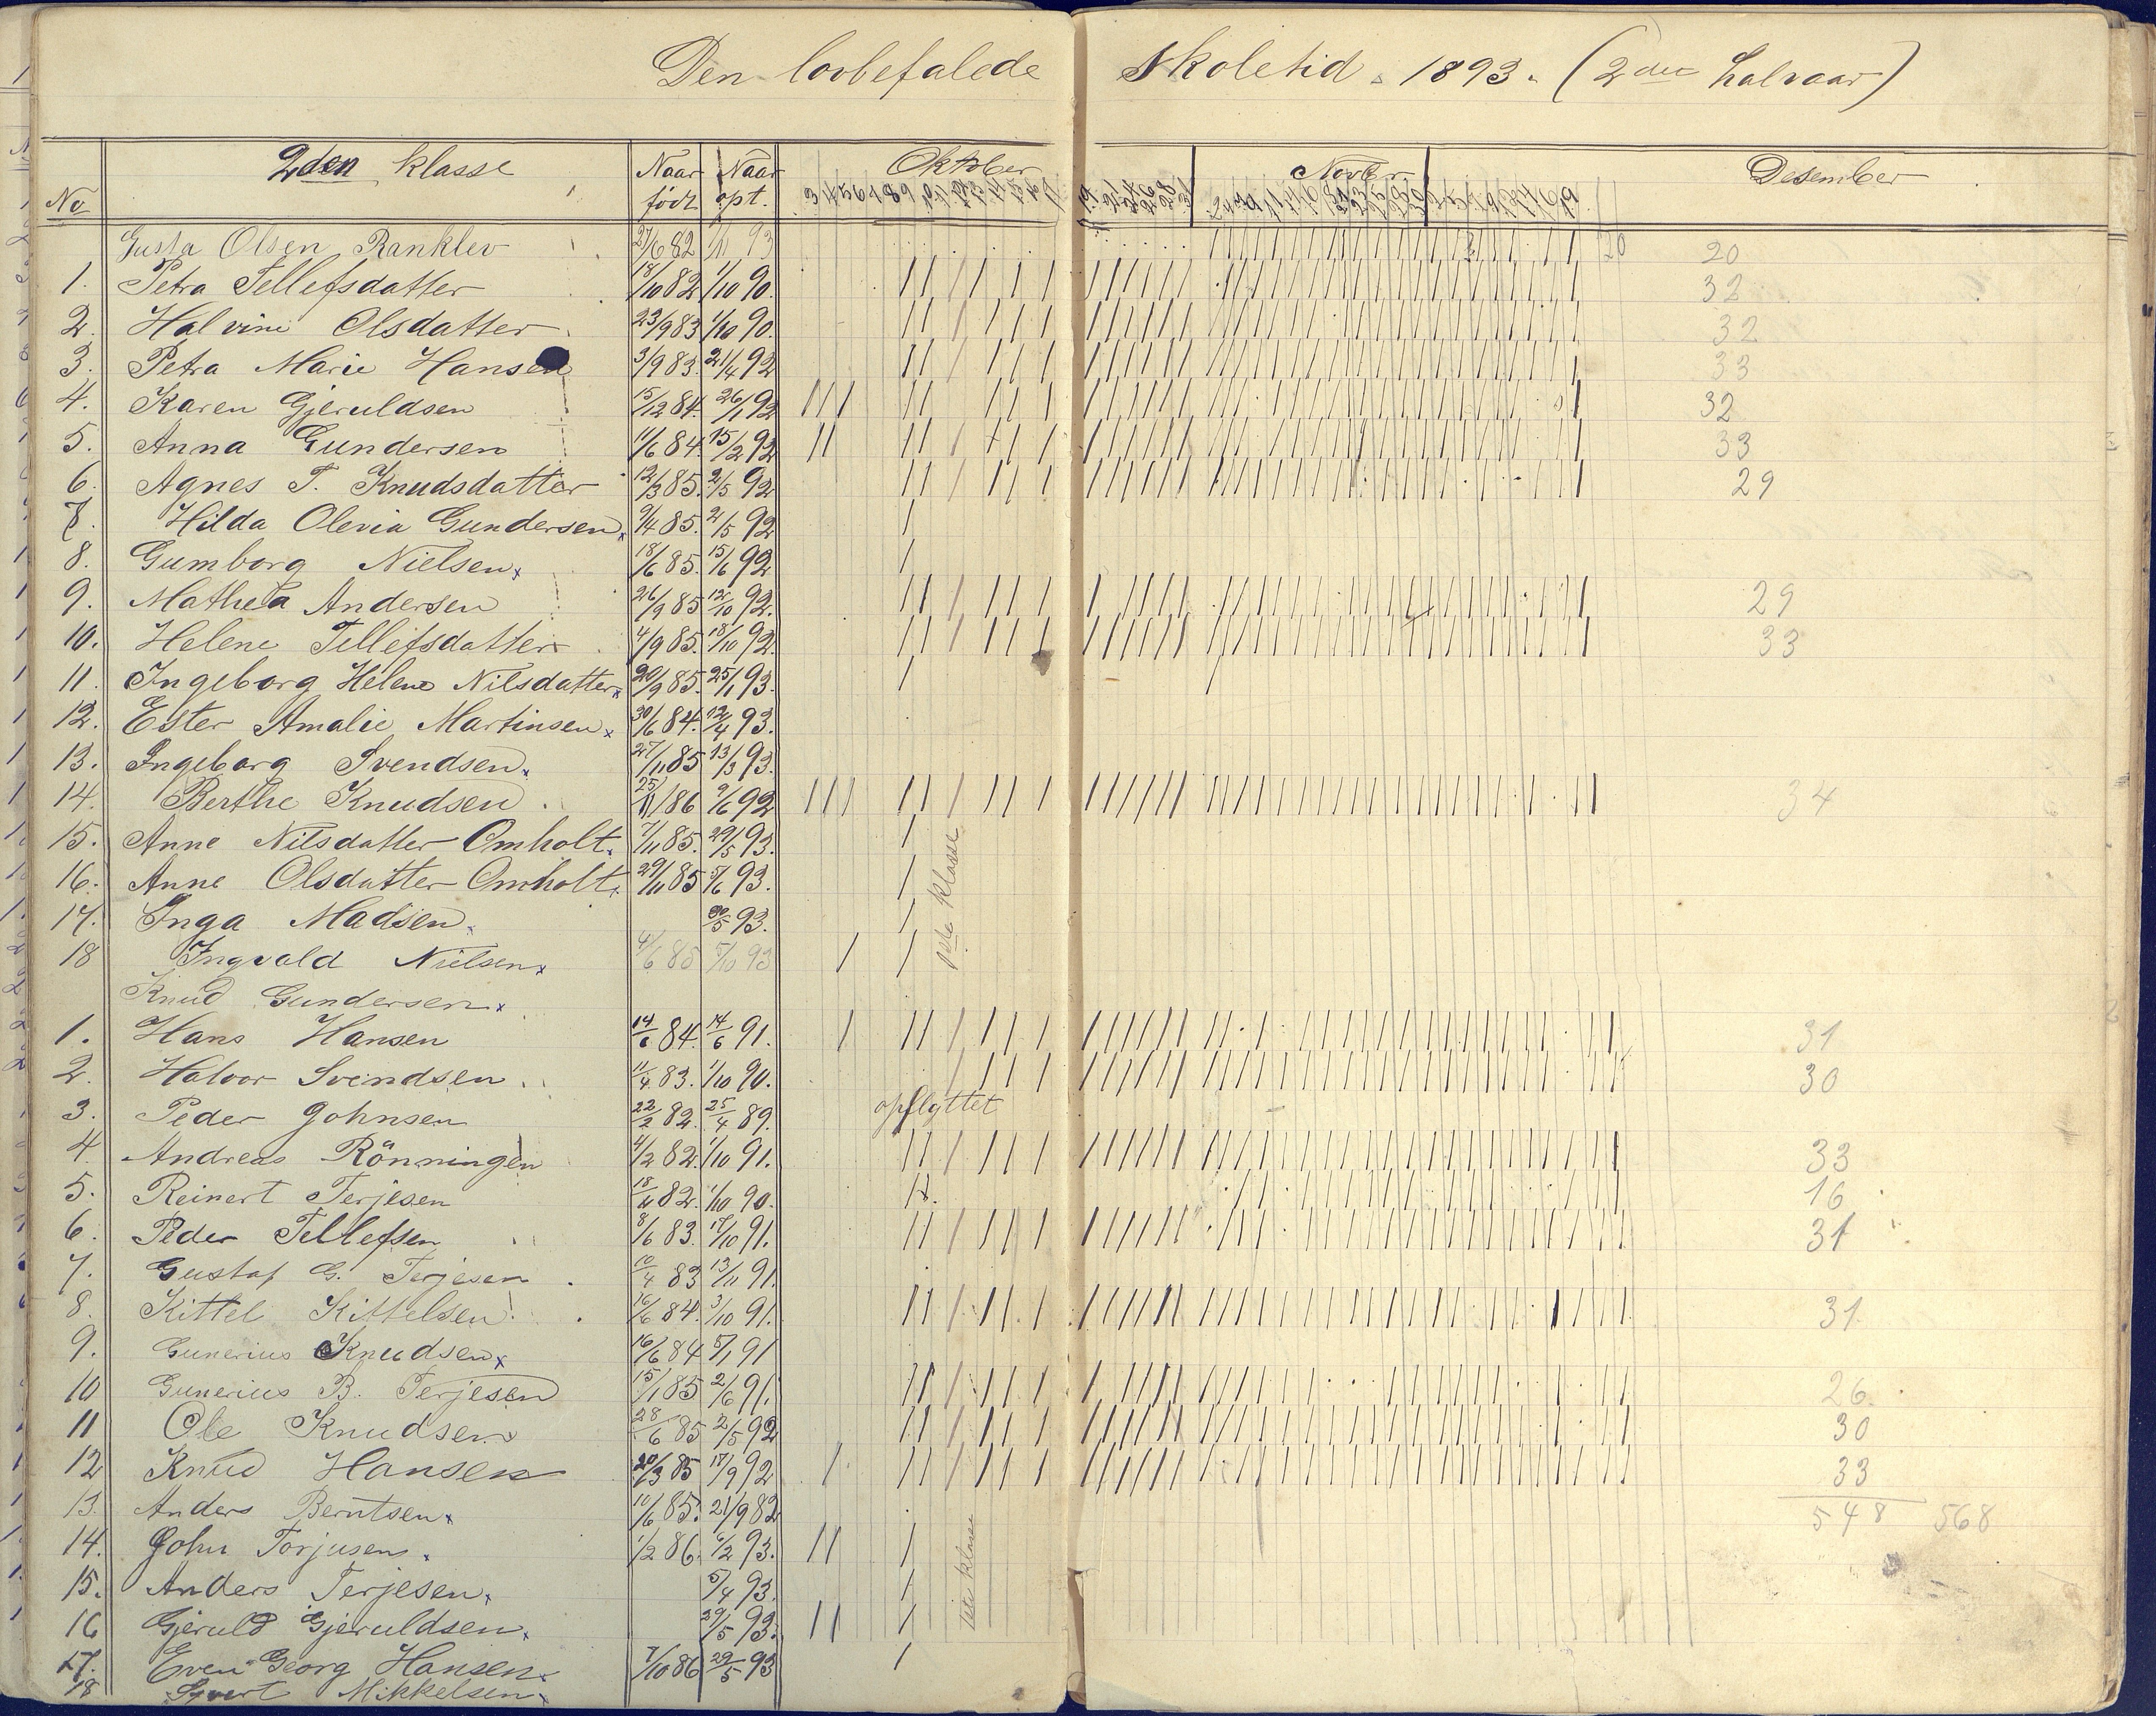 Den lovbefalede Skoletid 1893. (2den halvaar)
No 2den klasse Naar født Naar opt. Oktober Novbr Desember
Gusta Olsen Ranklev 27/6 82 1/11 93 20 20
1. Petra Tellefsdatter 18/10 82 1/10 90. 32
2. Halvine Olsdatter 23/9 83 1/10 90. 32
3. Petra Marie Hansen 3/9 83. 21/4 92 33
4. Karen Gjeruldsen 15/12 84. 26/1 92 32
5. Anna Gundersen 11/6 84. 15/2 92 33
6. Agnes T. Knudsdatter 12/3 85. 2/5 92 29
7. Hilda Olevia Gundersen 9/4 85. 2/5 92
8. Gumborg Nielsen 18/6 85. 15/6 92
9. Mathea Andersen 26/9 85 12/10 92. 29
10. Helene Tellefsdatter 4/9 85. 18/10 92. 33
11. Ingeborg Helene Nilsdatter 20/9 85. 25/1 93.
12. Ester Amalie Martinsen 30/6 84. 12/4 93.
13. Ingeborg Svendsen 27/11 85 13/3 93.
14. Berthe Knudsen 25/11 86 9/6 92 34
15. Anne Nilsdatter Omholt 7/11 85. 29/5 93.
16. Anne Olsdatter Omholt 29/11 85 5/6 93.
17. Inga Madsen 30/5 93.
1ste klasse
18 Ingvald Nielsen 4/6 85 5/10 93
Knud Gundersen
1. Hans Hansen 14/6 84. 14/6 91. 31
2. Halvor Svendsen 11/4 83. 1/10 90. 30
3. Peder Johnsen 22/2 82. 25/4 89. opflyttet
4. Andreas Rönningen 4/2 82. 1/10 91. 33
5. Reinert Terjesen 18/11 82. 1/10 90. 16
6. Peder Tellefsen 8/6 83. 17/10 91. 31
7. Gustaf G. Terjesen 10/4 83 13/11 91.
8. Kittel Kittelsen 16/6 84. 3/10 91. 31
9. Gunerius Knudsen 16/6 84 5/1 91
10 Gunerius B. Terjesen 15/1 85 2/6 91. 26.
11 Ole Knudsen 28/6 85 2/5 92 30
12 Knud Hansen 20/3 85 17/9 92 33
13. Anders Berntsen 10/6 85. 21/9 82 548 568
14. John Torjusen 1/2 86. 6/2 93.
15. Anders Terjesen 5/4 93.
1ste klasse
16 Gjeruld Gjeruldsen 29/5 93.
17. Even Georg Hansen 7/10 86 29/5 93
18 Mikkelsen